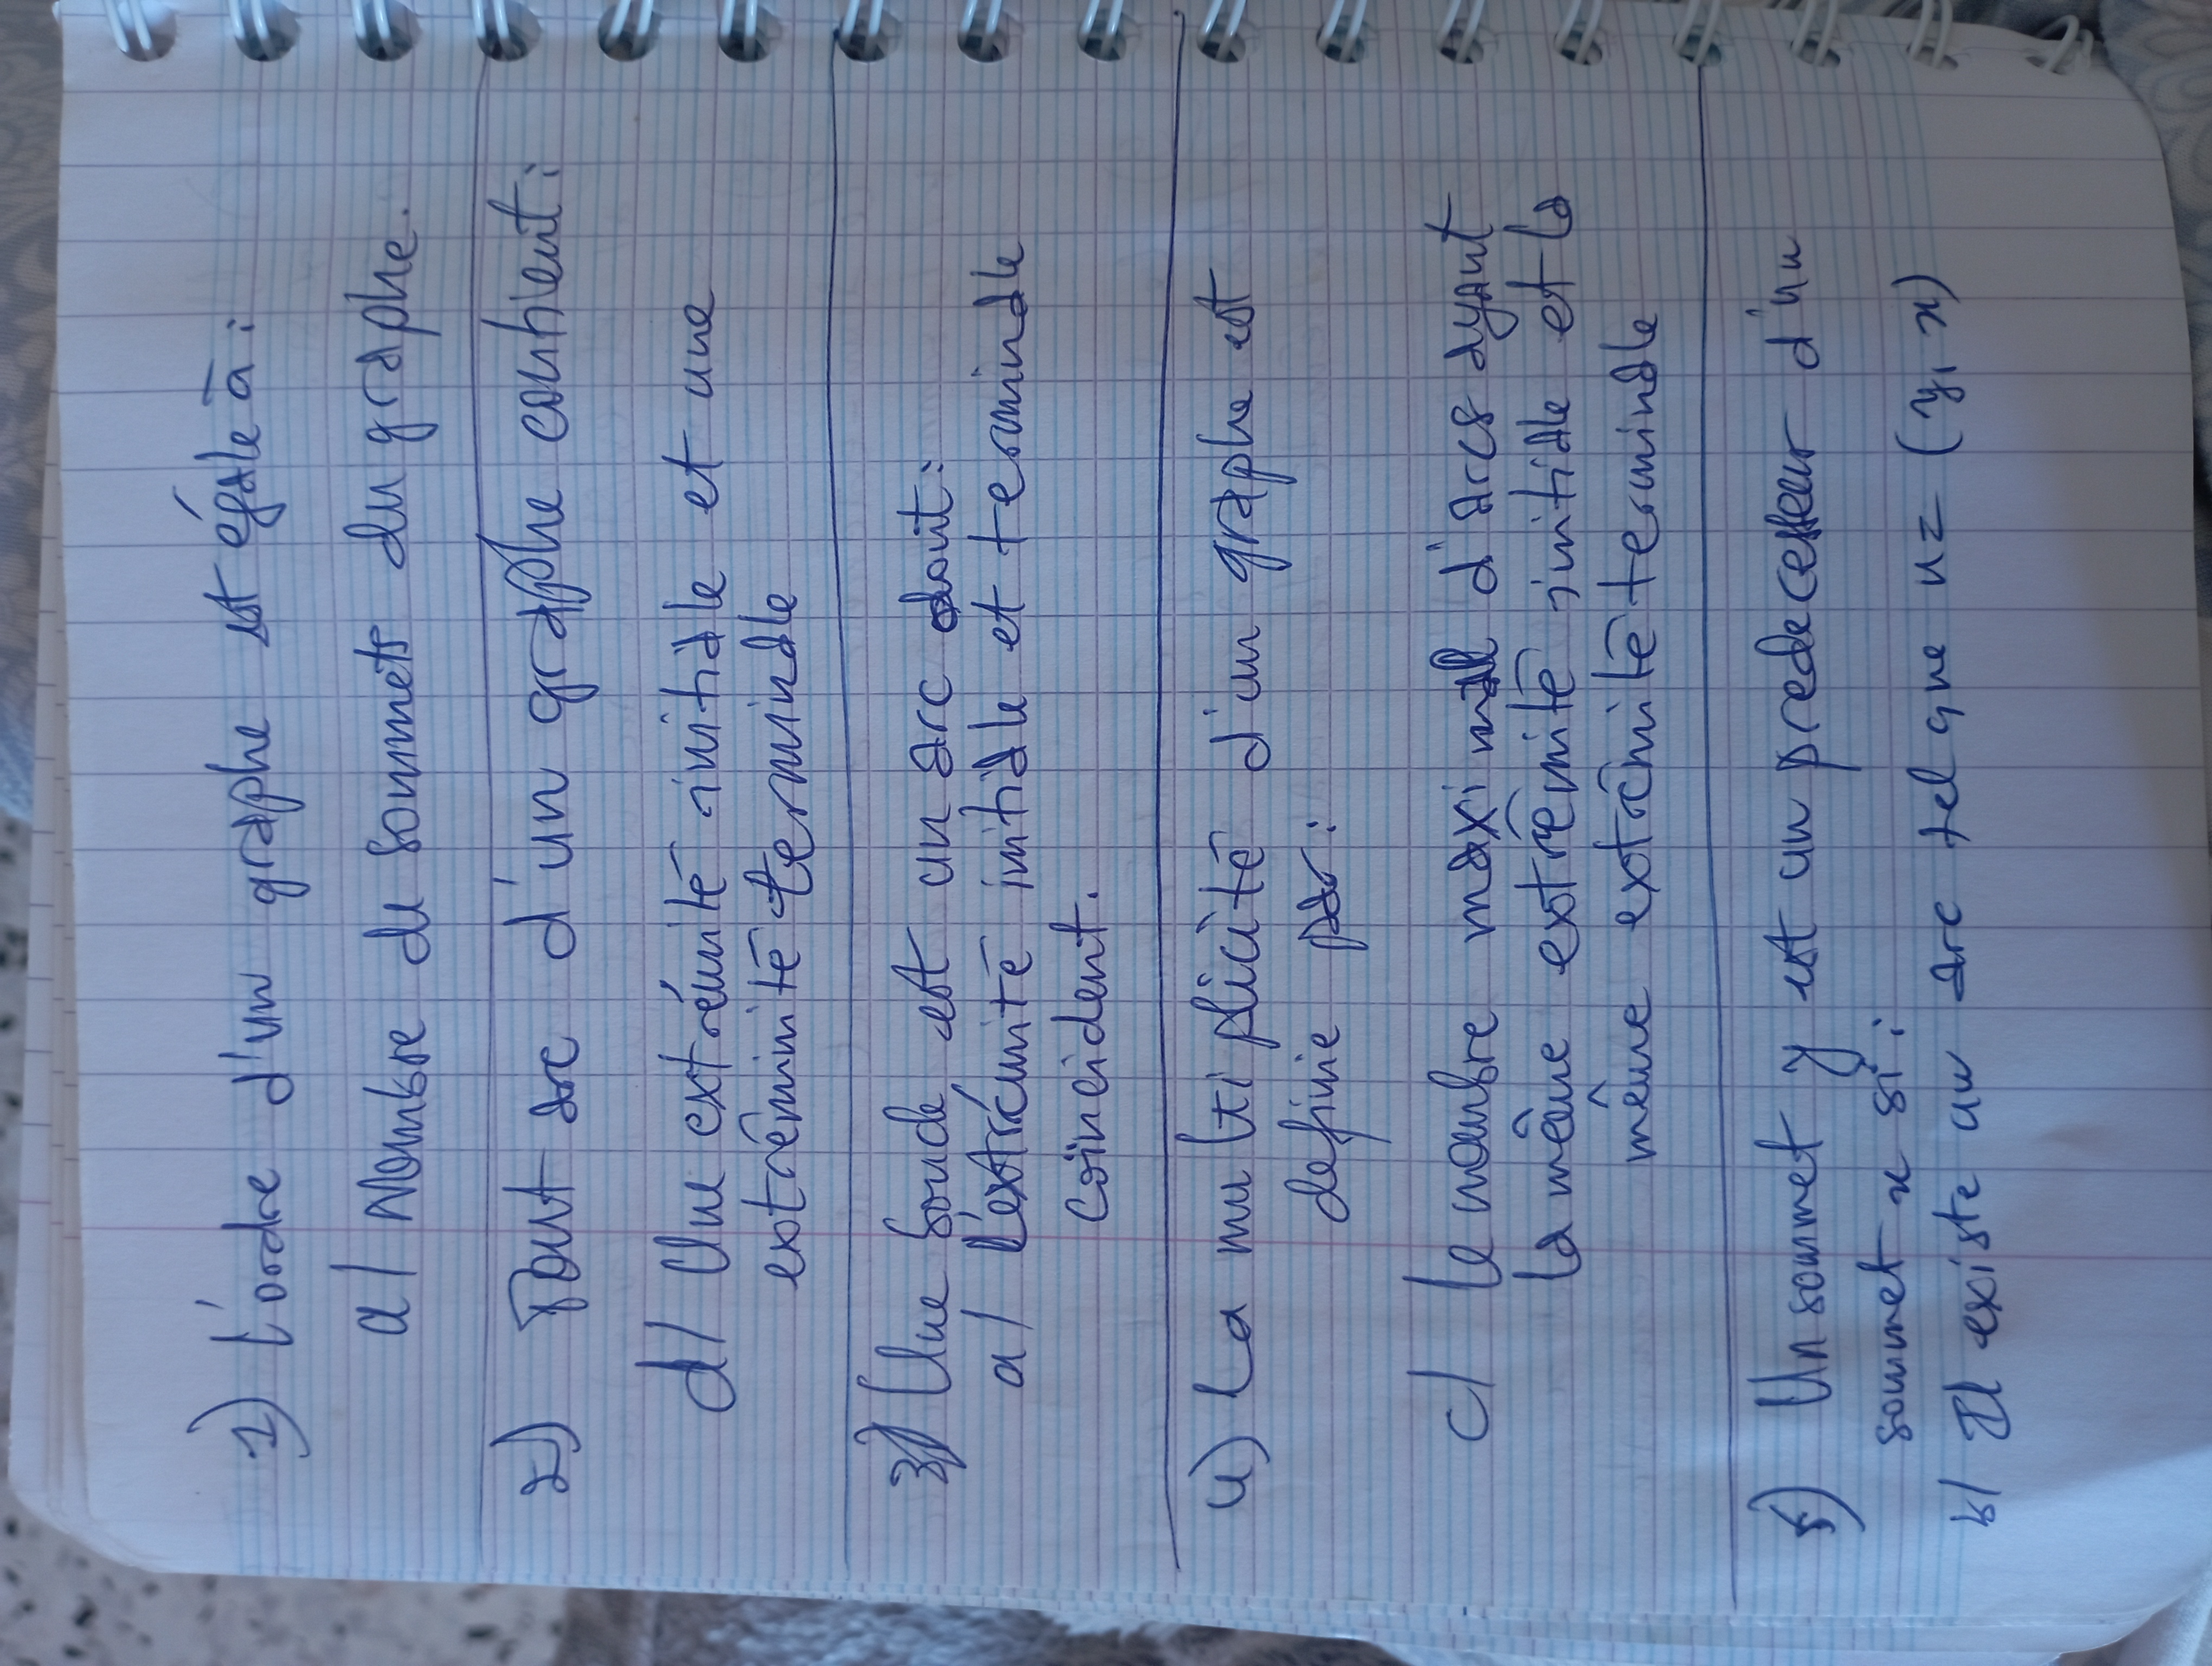 1) L'ordre d'un graphe est égale à :
a/ Nombre de sommets du graphe.
2) Tout arc d'un graphe contient :
d/ Une extrémité initiale et une
extrémité terminale
3) Une boucle est un arc dont :
a/ L'extrémité initiale et terminale
coïncident.
4) La multiplicité d'un graphe est
definie par :
c/ le nombre maximal d'arcs ayant
la même extrêmité initiale et la
même extrêmité terminale
5) Un sommet y est un predecesseur d'un
sommet x si :
b/ Il existe un arc tel que u= (y, x)